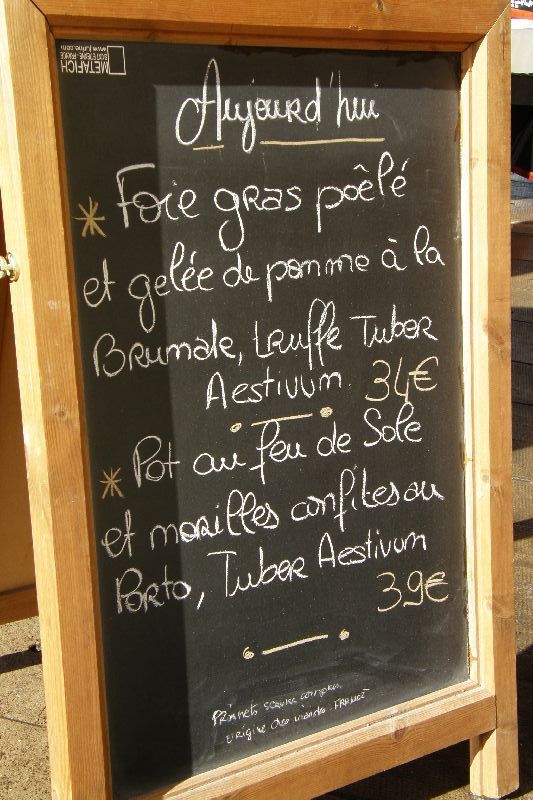 METAFICH
www.jufine.com
Aujourd'hui
* Foie gras poêlé
et gelée de pomme à la
Brumale, truffe Tuber
Aestivum. 34€
* Pot au feu de Sole
et morilles confites au
Porto, Tuber Aestivum
39€
service compris.
origine des viandes : FRANCE